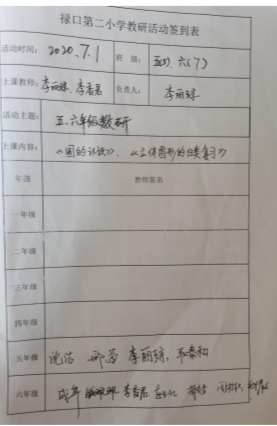 禄口第二小学教研活动签到表
活动时间: 2020.7.1 班级: 五(1)、六(7)
上课教师: 李丽琼、李香君 负责人: 李丽琼
活动主题: 五.六年级教研
上课内容: 《圆的认识》、《立体图形的归类复习》
年级 教师签名
一年级
二年级
三年级
四年级
五年级 李丽琼
六年级 李香君